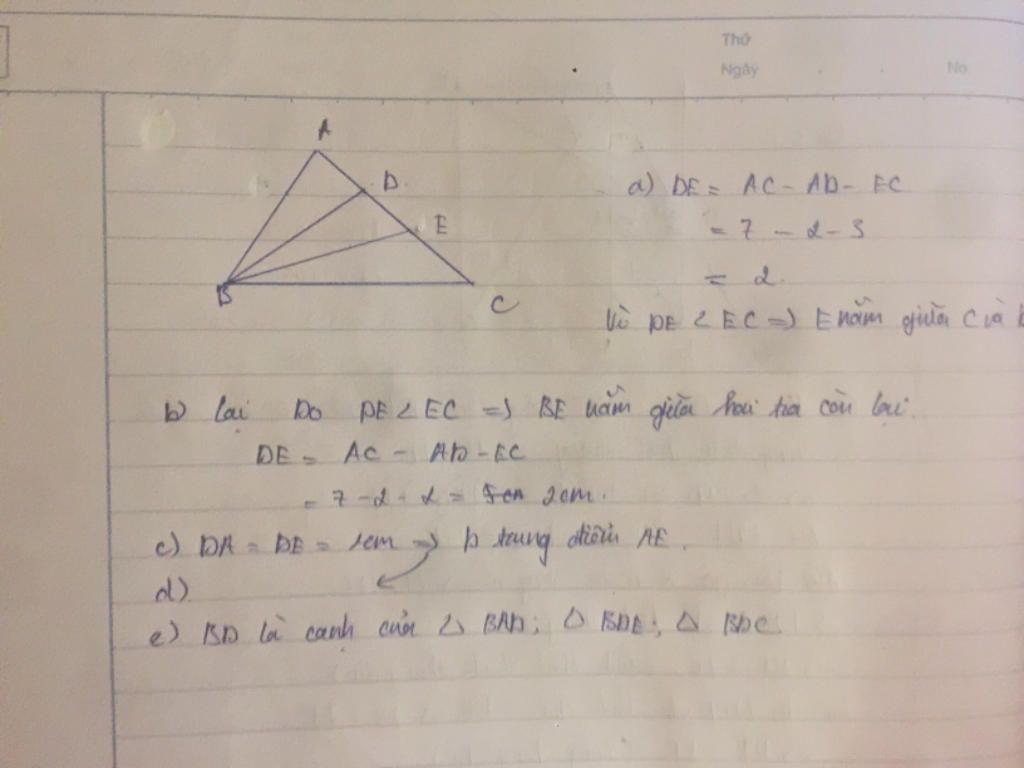 Thứ
Ngày
No
A
D
E
B
C
a) DE = AC - AD - EC
= 7 - 2 - 3
= 2
Vì DE < EC => E nằm giữa C và
b) lại Do DE < EC => BE nằm giữa hai tia còn lại.
DE = AC - AD - EC
= 7 - 2 - 2 = 2cm.
c) DA = DE = 1cm => D trung điểm AE.
d)
e) BD là cạnh của △ BAD; △ BDE; △ BDC